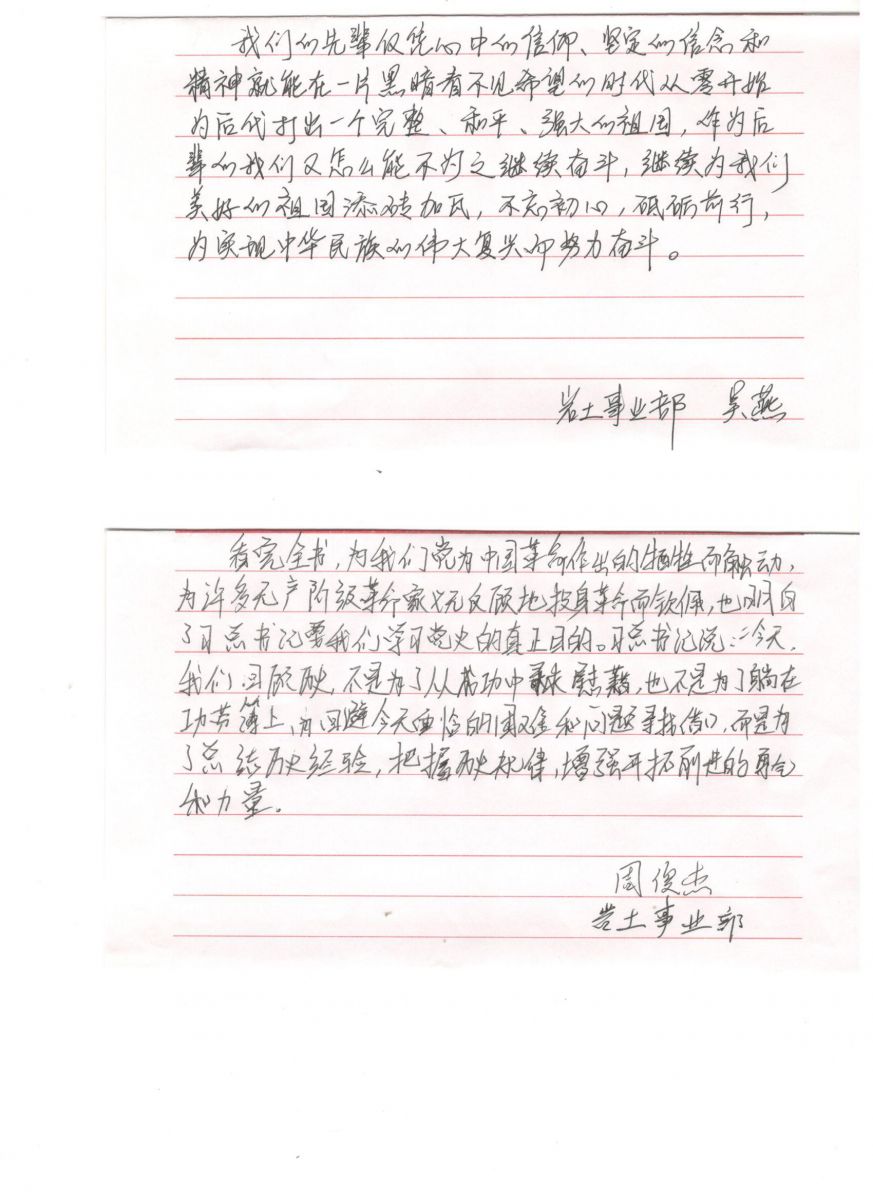 我们的先辈仅凭心中的信仰、坚定的信念和
精神就能在一片黑暗看不见希望的时代从零开始
为后代打出一个完整、和平、强大的祖国，作为后
辈的我们又怎么能不为之继续奋斗，继续为我们
美好的祖国添砖加瓦，不忘初心，砥砺前行，
为实现中华民族的伟大复兴而努力奋斗。
岩土事业部 吴燕
看完全书，为我们党为中国革命作出的牺牲而触动，
为许多无产阶级革命家义无反顾地投身革命而钦佩，也明白
了习总书记要我们学习党史的真正目的。习总书记说：“今天，
我们回顾历史，不是为了从成功中寻求慰藉，也不是为了躺在
功劳簿上、为回避今天面临的困难和问题寻找借口，而是为
了总结历史经验，把握历史规律，增强开拓前进的勇气
和力量。
周俊杰
岩土事业部